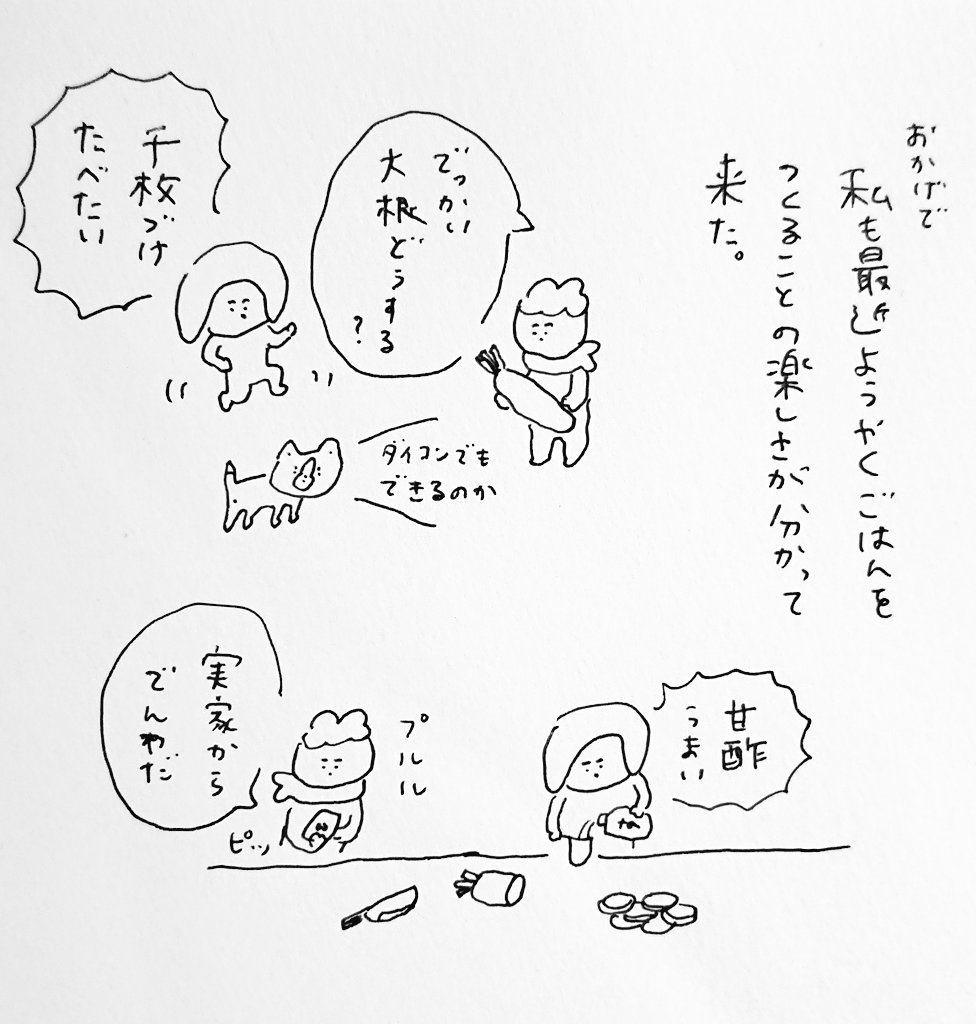 おかげで
私も最近ようやくごはんを
つくることの楽しさが分かって
来た。
でっかい
大根どうする
?
千枚づけ
たべたい
ダイコンでも
できるのか
甘酢
うまい
プルルル
実家から
でんわだ
ピッ